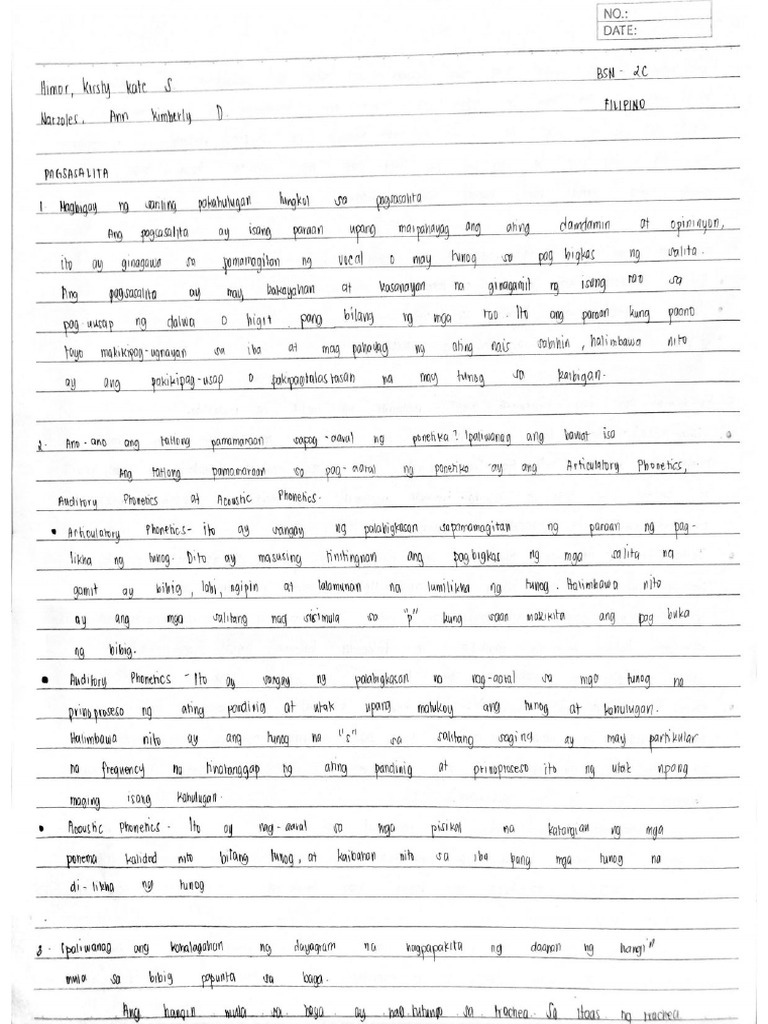 NO.:
DATE:
Aimor, Kirsty Kate S
BSN - 2C
Narzoles, Ann Kimberly D.
FILIPINO
PAGSASALITA
1. Magbigay ng sariling pakahulugan tungkol sa pagsasalita
Ang pagsasalita ay isang paraan upang maipahayag ang ating damdamin at opininyon,
ito ay ginagawa sa pamamagitan ng vocal o may tunog sa pag bigkas ng salita.
Ang pagsasalita ay may kakayahan at kasanayan na ginagamit ng isang tao sa
pag uusap ng dalwa o higit pang bilang ng mga tao. Ito ang paraan kung paano
tayo makikipag-ugnayan sa iba at mag pahayag ng ating nais sabihin, halimbawa nito
ay ang pakikipag-usap o pakipagtalastasan na may tunog sa kaibigan.
2. Ano-ano ang tatlong pamamaraan sapag-aaral ng ponetika? Ipaliwanag ang bawat isa
Ang tatlong pamamaraan sa pag-aaral ng ponetika ay ang Articulatory Phonetics,
Auditory Phonetics at Acoustic Phonetics.
• Articulatory Phonetics- ito ay sangay ng palabigkasan sapamamagitan ng paraan ng pag-
likha ng tunog. Dito ay masusing tinitingnan ang pagbigkas ng mga salita na
gamit ay bibig, labi, ngipin at lalamunan na lumilikha ng tunog. Halimbawa nito
ay ang mga salitang nag sisimula sa "p" kung saan makikita ang pag buka
ng bibig.
• Auditory Phonetics - Ito ay sangay ng palabigkasan na nag-aaral sa mga tunog na
prinoproseso ng ating pandinig at utak upang matukoy ang tunog at kahulugan.
Halimbawa nito ay ang tunog na "s" sa salitang saging ay may partikular
na frequency na tinatanggap ng ating pandinig at prinoproseso ito ng utak upang
maging isang kahulugan.
• Acoustic Phonetics - Ito ay nag-aaral sa mga pisikal na katangian ng mga
ponema kalidad nito bilang tunog, at kaibahan nito sa iba pang mga tunog na
di-likha ng tunog
3. Ipaliwanag ang kahalagahan ng dayagram na nagpapakita ng daanan ng hangin
mula sa bibig papunta sa baga.
Ang hangin mula sa baga ay nag tutungo sa trachea. Sa itaas ng trachea